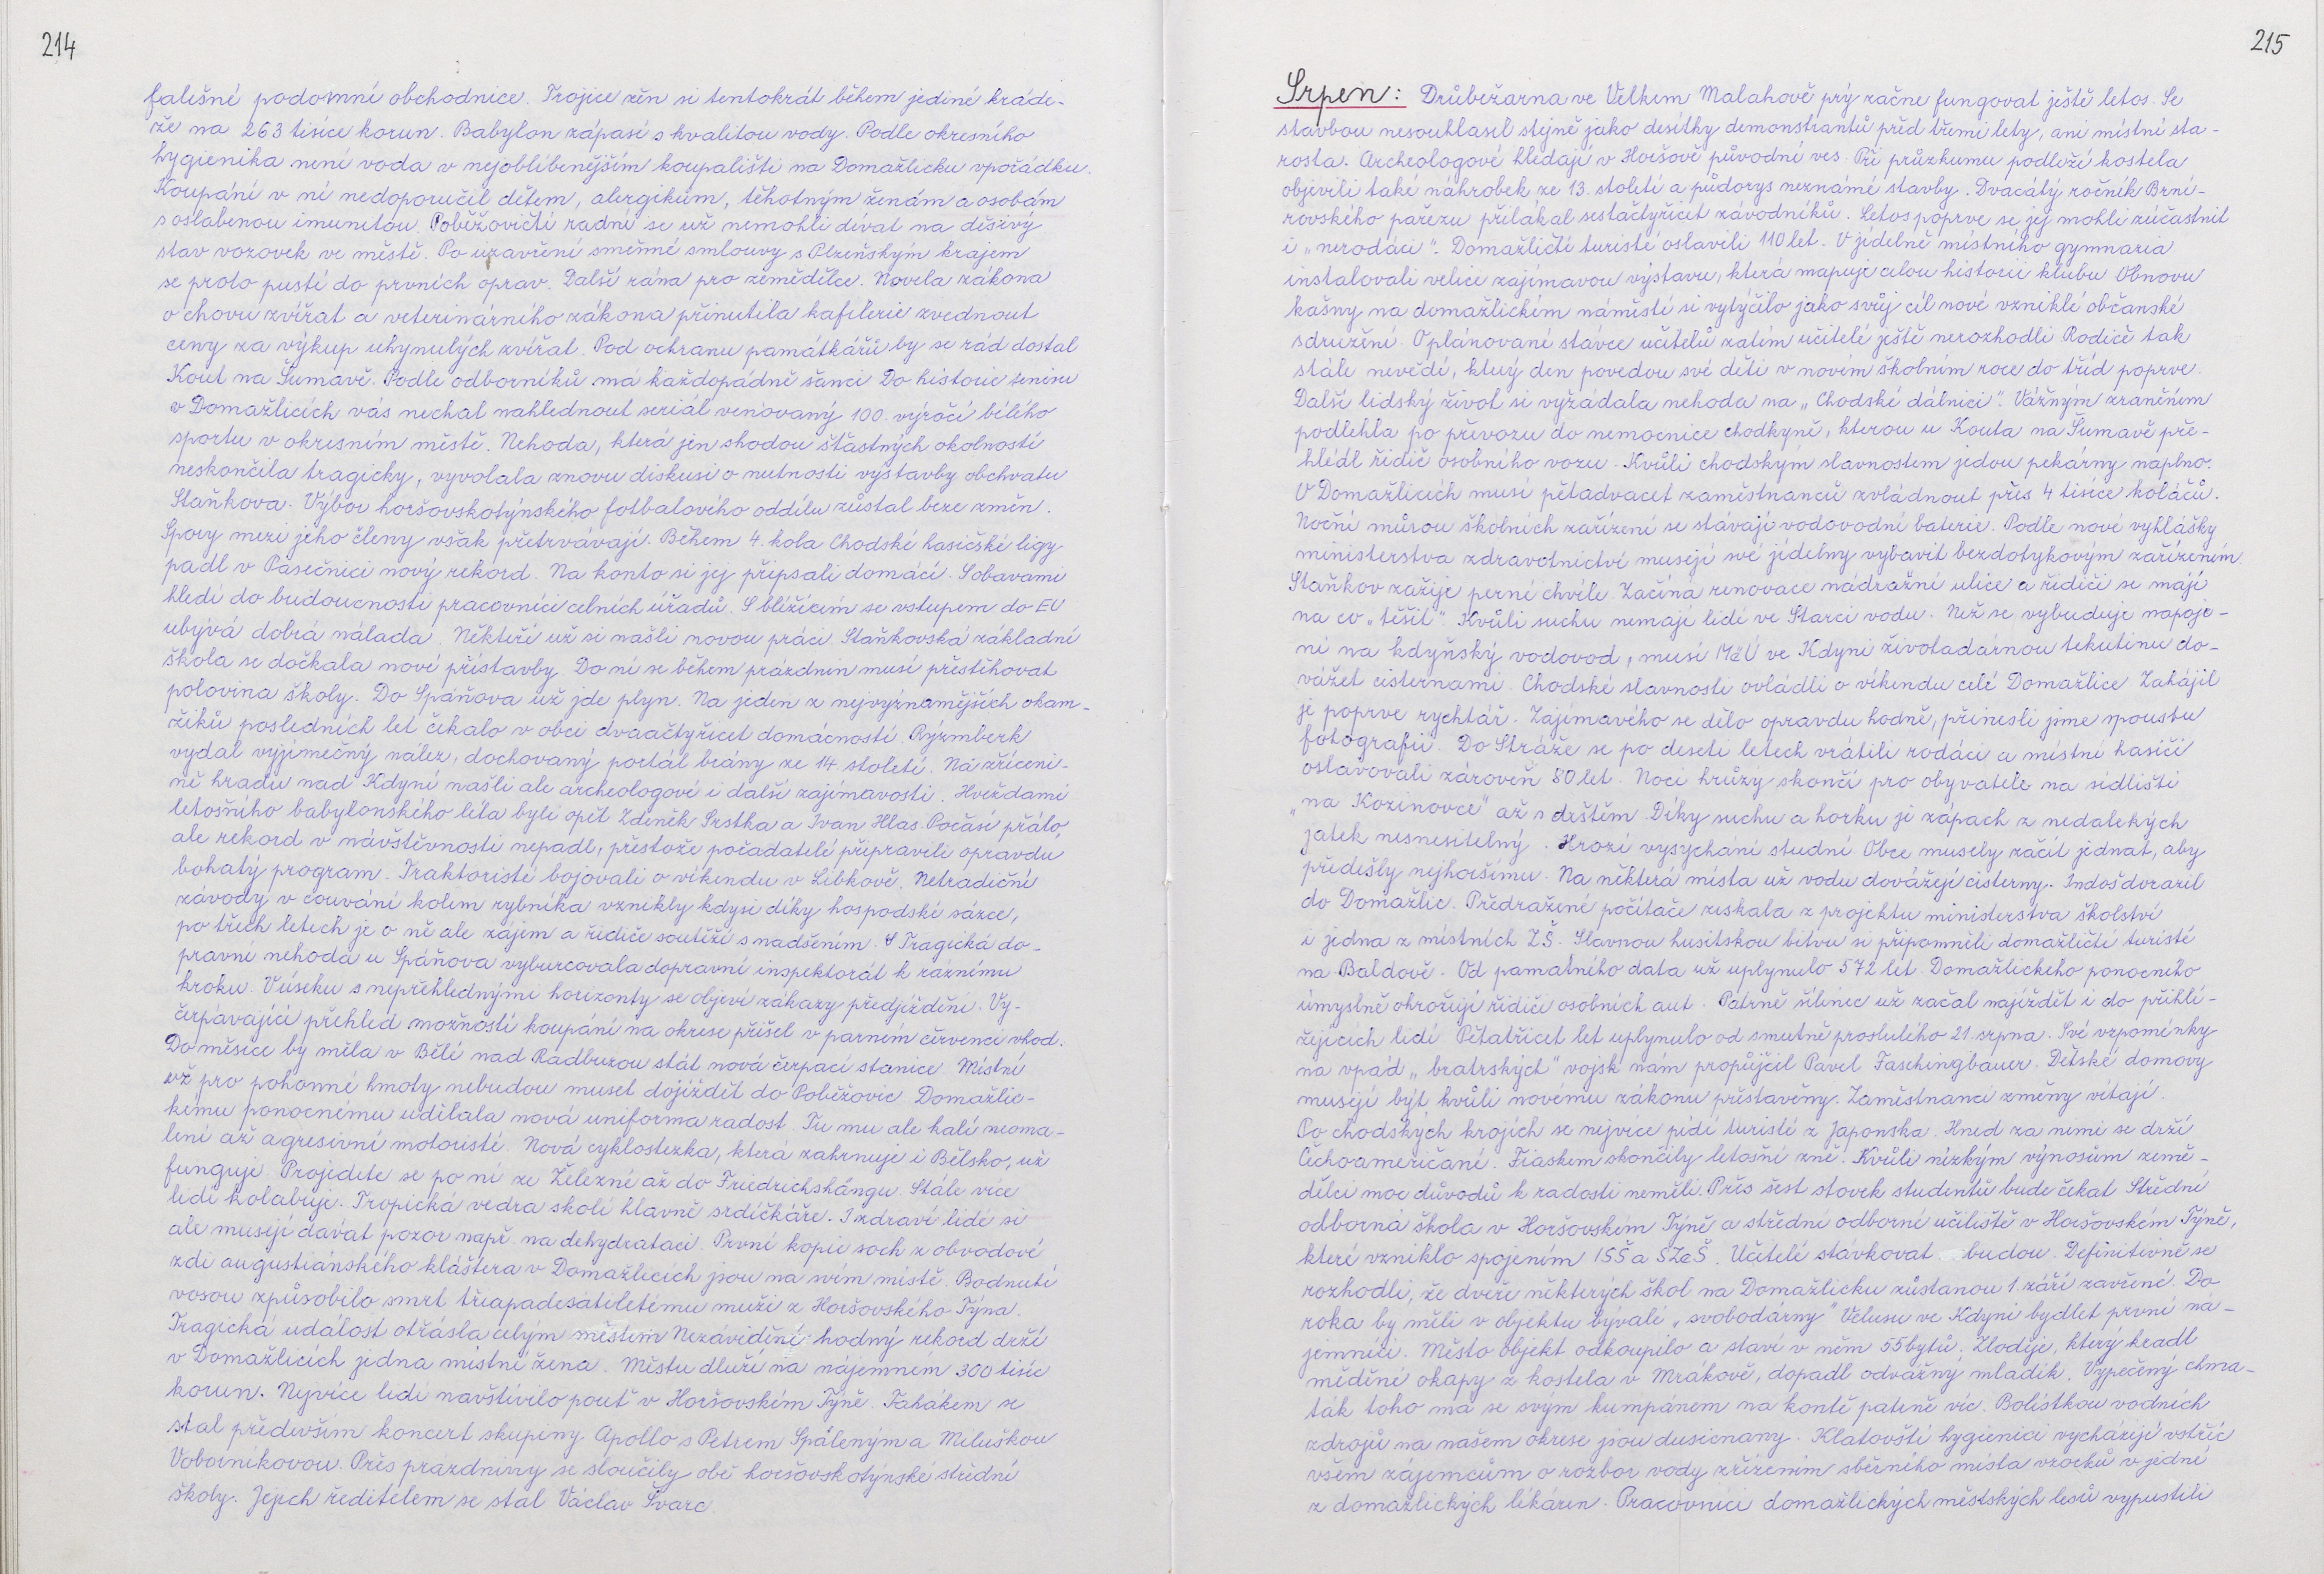 214
falešné podomní obchodnice. Trojice žen si tentokrát během jediné kráde-
že na 263 tisíce korun. Babylon zápasí s kvalitou vody. Podle okresního
hygienika není voda v nejoblíbenějším koupališti na Domažlicku vpořádku.
Koupání v ní nedoporučil dětem, alergikům, těhotným ženám a osobám
s oslabenou imunitou. Poběžovičtí radní se už nemohli dívat na děsivý
stav vozovek ve městě. Po uzavření směnné smlouvy s Plzeňským krajem
se proto pustí do prvních oprav. Další rána pro zemědělce. Novela zákona
o chovu zvířat a veterinárního zákona přinutila kafilerie zvednout
ceny za výkup uhynulých zvířat. Pod ochranu památkářů by se rád dostal
Kout na Šumavě. Podle odborníků má každopádně šanci Do historie tenisu
v Domažlicích vás nechal nahlédnout seriál venovaný 100. výročí bílého
sportu v okresním městě. Nehoda, která jen shodou šťastných okolností
neskončila tragicky, vyvolala znovu diskusi o nutnosti výstavby obchvatu
Staňkova. Výbor horšovskotýnského fotbalového oddílu zůstal beze změn.
Spory mezi jeho členy však přetrvávají. Během 4. kola Chodské hasičské ligy
padl v Pasečnici nový rekord. Na konto si jej připsali domácí. S obavami
hledí do budoucnosti pracovníci celních úřadů. S blížícím se vstupem do EU
ubývá dobrá nálada. Někteří už si našli novou práci. Staňkovská základní
škola se dočkala nové přístavby. Do ní se během prázdnin musí přestěhovat
polovina školy. Do Spáňova už jde plyn. Na jeden z nejvýznamějších okam-
žiků posledních let čekalo v obci dvaačtyřicet domácností. Rýzmberk
vydal vyjímečný nález, dochovaný portál brány ze 14. století. Na zříceni-
ně hradu nad Kdyní našli ale archeologové i další zajímavosti. Hvězdami
letošního babylonského léta byli opět Zdeněk Srstka a Ivan Hlas. Počasí přálo,
ale rekord v návštěvnosti nepadl, přestože pořadatelé připravili opravdu
bohatý program. Traktoristé bojovali o víkendu v Libkově. Netradiční
závody v couvání kolem rybníka vznikly kdysi díky hospodské sázce,
po třech letech je o ně ale zájem a řidiče soutěží s nadšením. Tragická do-
pravní nehoda u Spáňova vyburcovala dopravní inspektorát k ráznému
kroku. V úseku s nepřehlednými horizonty se objeví zákazy předjíždění. Vy-
čerpávající přehled možností koupání na okrese přišel v parném červenci vhod.
Do měsíce by měla v Bělé nad Radbuzou stát nová čerpací stanice Místní
už pro pohonné hmoty nebudou muset dojíždět do Poběžovic. Domažlic-
kému ponocnému udělala nová uniforma radost. Tu mu ale kalí neoma-
lení až agresivní motoristé. Nová cyklostezka, která zahrnuje i Bělsko, už
funguje. Projedete se po ní ze Železné až do Friedrichshängu. Stále více
lidí kolabuje. Tropická vedra skolí hlavně srdíčkáře. I zdraví lidé si
ale musejí dávat pozor např. na dehydrataci. První kopie soch z obvodové
zdi augustiánského kláštera v Domažlicích jsou na svém místě. Bodnutí
vosou způsobilo smrt třiapadesátiletému muži z Horšovského Týna.
Tragická událost otřásla celým městem Nezávidění hodný rekord drží
v Domažlicích jedna místní žena. Městu dluží na nájemném 300 tisíc
korun. Nejvíce lidí navštívilo pouť v Horšovském Týně. Tahákem se
stal především koncert skupiny Apollo s Petrem Spáleným a Miluškou
Voborníkovou. Přes prázdniny se sloučily obě horšovskotýnské střední
školy. Jejich ředitelem se stal Václav Švarc.
215
Srpen: Drůbežárna ve Velkém Malahově prý začne fungovat ještě letos. Se
stavbou nesouhlasil stejně jako desítky demonstrantů před třemi lety, ani místní sta-
rosta. Archeologové hledají v Horšově původní ves. Při průzkumu podloží kostela
objevili také náhrobek ze 13. století a půdorys neznámé stavby. Dvacátý ročník Brní-
rovského pařezu přilákal sestačtyřicet závodníků. Letos poprve se jej mohli zúčastnit
i „nerodáci". Domažličtí turisté oslavili 110 let. V jídelně místního gymnasia
instalovali velice zajímavou výstavu, která mapuje celou historii klubu Obnovu
kašny na domažlickém náměstí si vytýčilo jako svůj cíl nové vzniklé občanské
sdružení. O plánované stávce učitelů zatím učitelé ještě nerozhodli Rodiče tak
stále nevědí, který den povedou své děti v novém školním roce do tříd poprve.
Další lidský život si vyžádala nehoda na „Chodské dálnici". Vážným zraněním
podlehla po převozu do nemocnice chodkyně, kterou u Kouta na Šumavě pře-
hlédl řidič osobního vozu. Kvůli chodským slavnostem jedou pekárny naplno.
V Domažlicích musí pětadvacet zaměstnanců zvládnout přes 4 tisíce koláčů.
Noční můrou školních zařízení se stávají vodovodní baterie. Podle nové vyhlášky
ministerstva zdravotnictví musejí své jídelny vybavit bezdotykovým zařízením.
Staňkov zažije perné chvíle. Začíná renovace nádražní ulice a řidiči se mají
na co „těšit". Kvůli suchu nemají lidé ve Starci vodu. Než se vybuduje napoje-
ní na kdyňský vodovod, musí MěÚ ve Kdyni životadárnou tekutinu do-
vážet cisternami. Chodské slavnosti ovládli o víkendu celé Domažlice Zahájil
je poprve rychtář. Zajímavého se dělo opravdu hodně, přinesli jsme spoustu
fotografií. Do Stráže se po deseti letech vrátili rodáci a místní hasiči
oslavovali zároveň 80 let. Noci hrůzy skončí pro obyvatele na sídlišti
„na Kozinovce" až s deštěm. Díky suchu a horku je zápach z nedalekých
jatek nesnesitelný. Hrozí vysychání studní. Obce musely začít jednat, aby
předešly nejhoršímu. Na některá místa už vodu dovážejí cisterny. Indoš dorazil
do Domažlic. Předražené počítače získala z projektu ministerstva školství
i jedna z místních ZŠ. Slavnou husitskou bitvu si připomněli domažličtí turisté
na Baldově. Od památného data už uplynulo 572 let. Domažlického ponocného
úmyslně ohrožují řidiči osobních aut. Patrně šílenec už začal najíždět i do přihlí-
žejících lidí. Pětatřicet let uplynulo od smutně proslulého 21. srpna. Své vzpomínky
na vpád „bratrských" vojsk nám propůjčil Pavel Faschingbauer. Dětské domovy
musejí být kvůli novému zákonu přestavěny. Zaměstnanci změny vítají.
Po chodských krojích se nejvíce pídí turisté z Japonska. Hned za nimi se drží
Čechoameričané. Fiaskem skončily letošní žně. Kvůli nízkým výnosům země-
dělci moc důvodů k radosti neměli. Přes šest stovek studentů bude čekat Střední
odborná škola v Horšovském Týně a střední odborné učiliště v Horšovském Týně,
které vzniklo spojením ISŠ a SZeŠ. Učitelé stávkovat budou. Definitivně se
rozhodli, že dveře některých škol na Domažlicku zůstanou 1. září zavřené. Do
roka by měli v objektu bývalé „svobodárny" Velusu ve Kdyni bydlet první ná-
jemníci. Město objekt odkoupilo a staví v něm 55 bytů. Zloděje, který kradl
měděné okapy z kostela v Mrákově, dopadl odvážný mladík. Vypečený chma-
ták toho má se svým kumpánem na kontě patrně víc. Bolístkou vodních
zdrojů na našem okrese jsou dusičnany. Klatovští hygienici vycházejí vstříc
všem zájemcům o rozbor vody zřízením sběrného místa vzorků v jedné
z domažlických lékáren. Pracovníci domažlických městských lesů vypustili